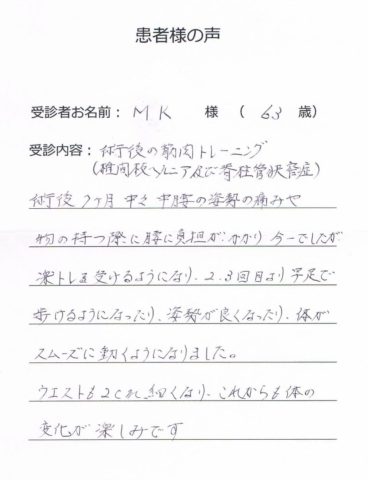 患者様の声
受診者お名前： MK 様 （ 63 歳）
受診内容： 術後の筋肉トレーニング
(椎間板ヘルニア及び脊柱管狭窄症)
術後 7ヶ月 中々 中腰の姿勢の痛みや
物の持つ際に腰に負担がかかり 今一でしたが
楽トレを受けるようになり、2.3回目より 早足で
歩けるようになったり、姿勢が良くなったり、体が
スムーズに動くようになりました。
ウエストも2cm細くなり、これからも体の
変化が楽しみです